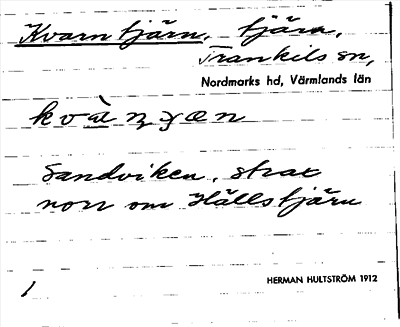 Kvarntjärn, tjärn,
Trankils sn,
Nordmarks hd, Värmlands län
Sandviken, strax
norr om Hällstjärn
HERMAN HULTSTRÖM 1912
1